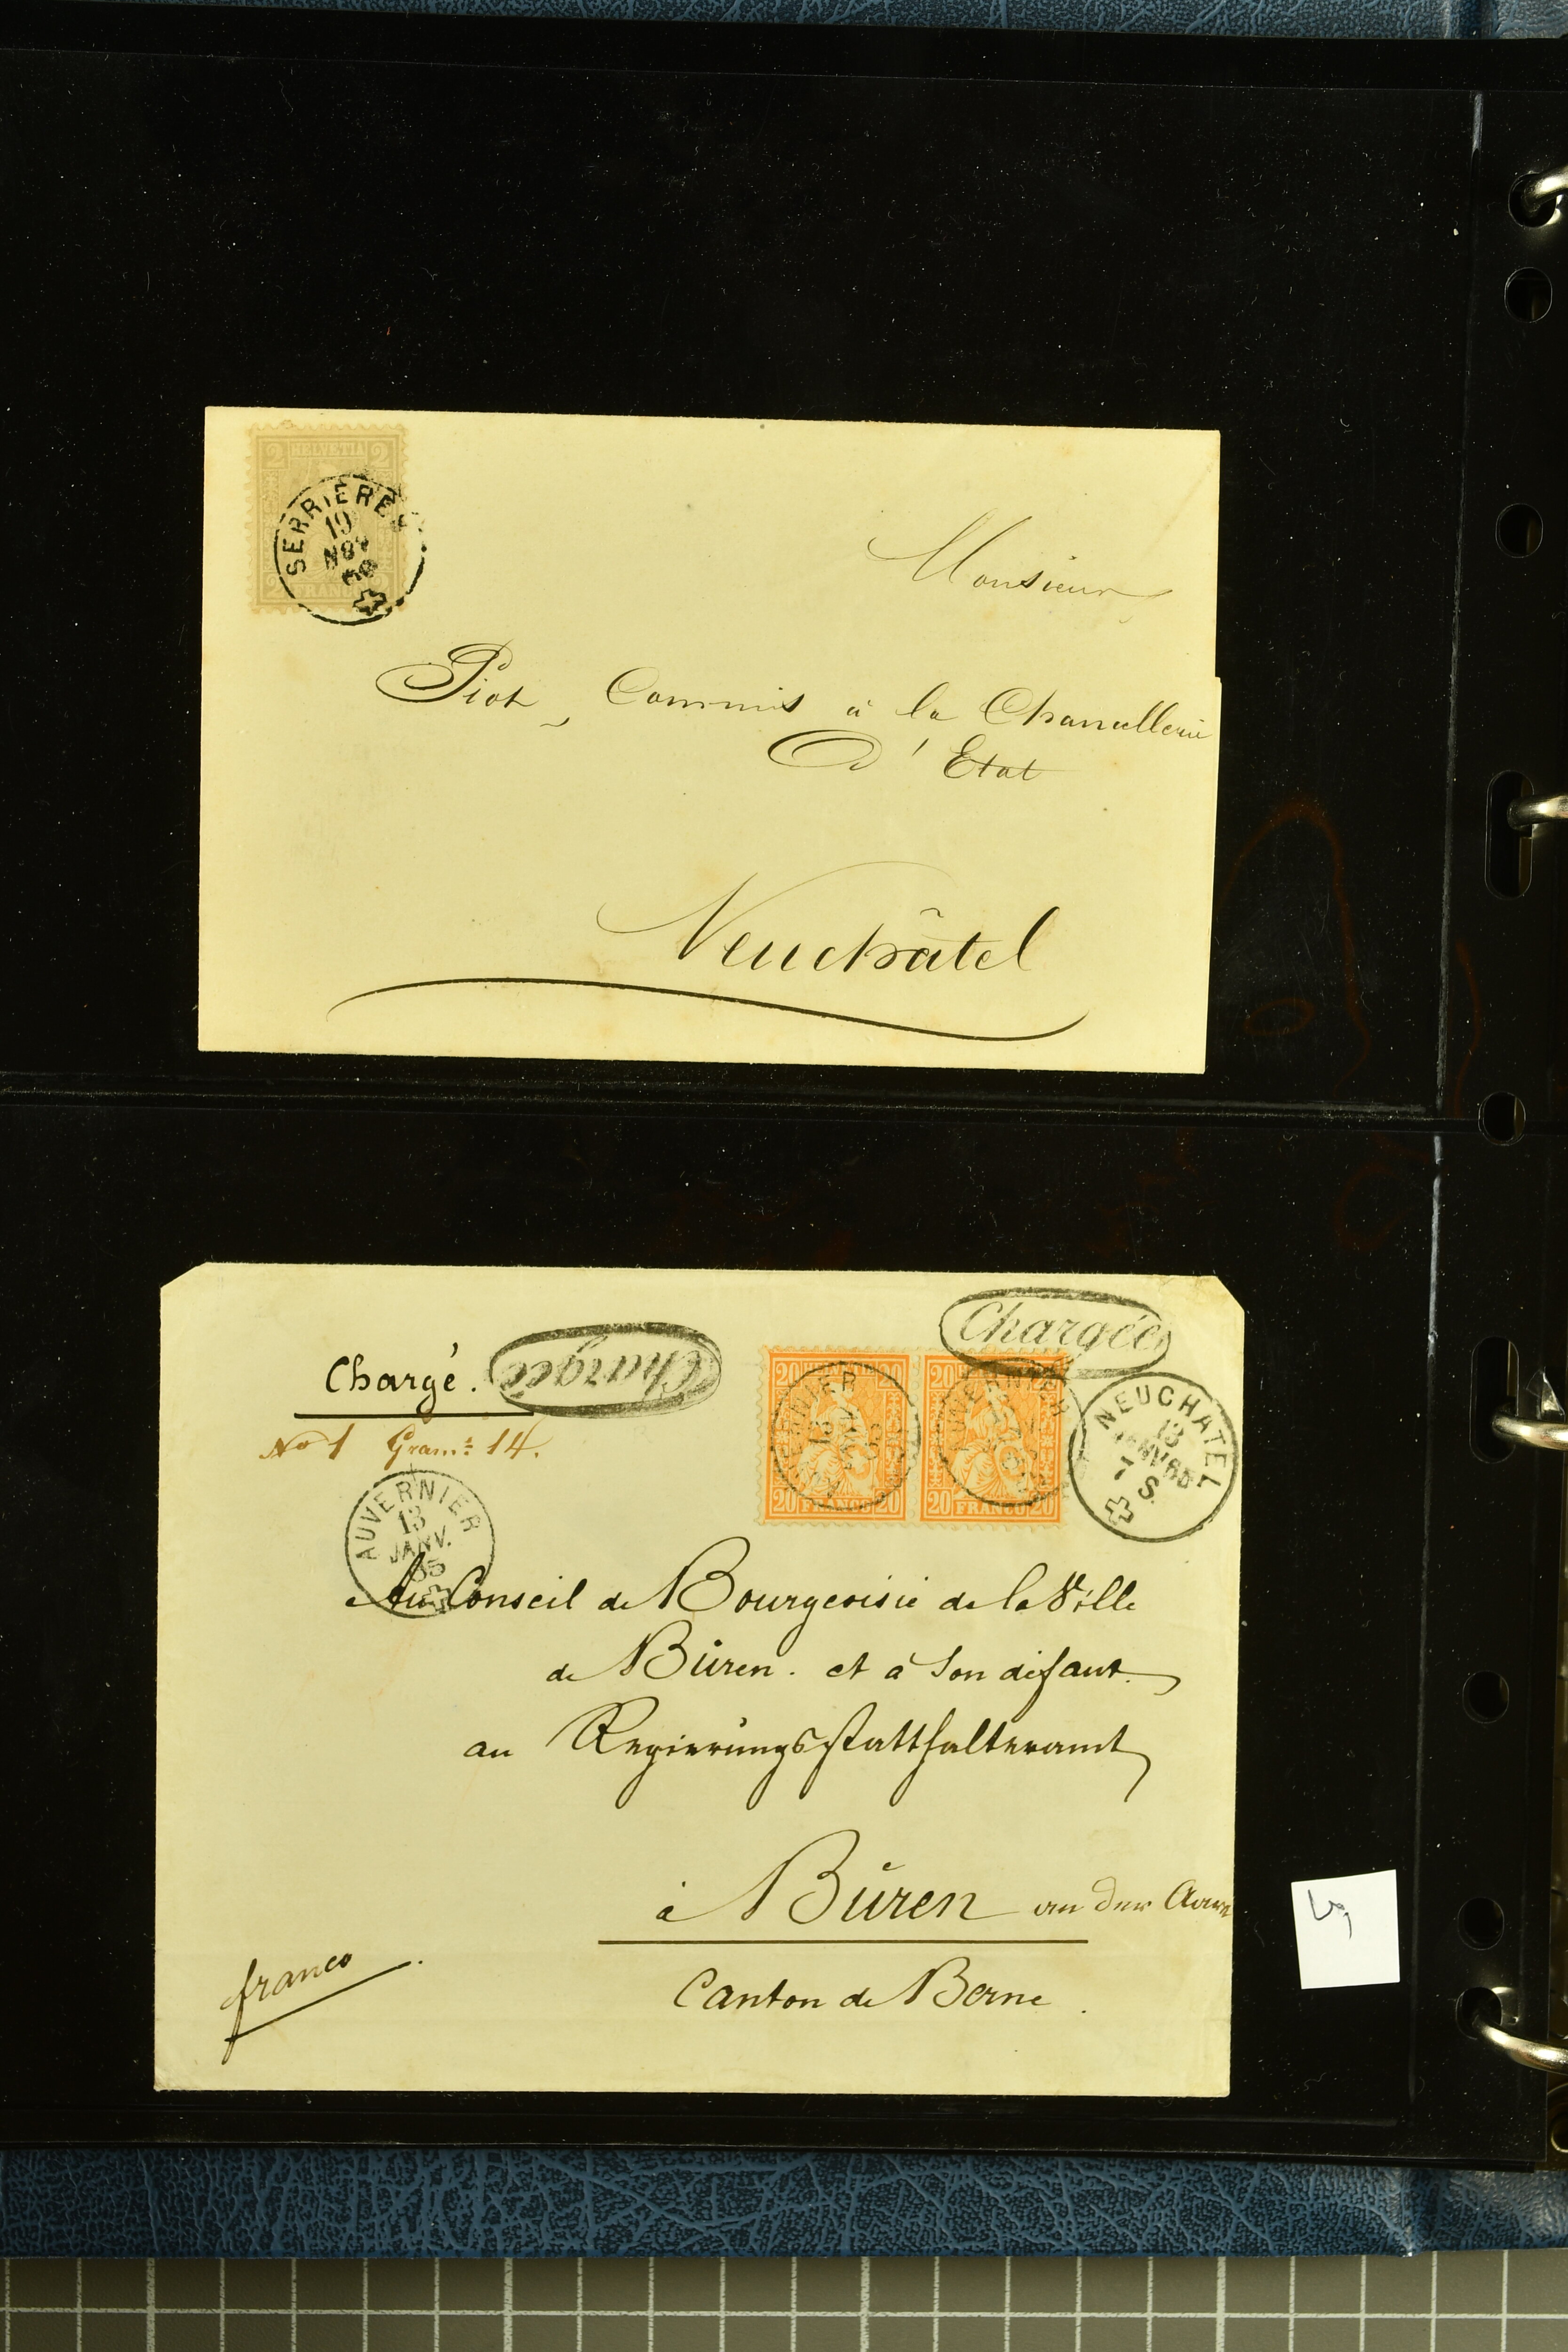 2 HELVETIA 2
SERRIÈRES
19
NOV
2 FRANCO 2
Monsieur
Piot, Commis à la Chancellerie
d'Etat
Neuchâtel
Chargé.
Chargée
Chargée
No 1 Gram: 14.
20 HELVETIA 20
20 HELVETIA 20
AUVERNIER
13
AUVERNIER
20 FRANCO 20
20 FRANCO 20
NEUCHATEL
13
JANV 65
7 S.
AUVERNIER
13
JANV.
65
Au Conseil de Bourgeoisie de la Ville
de Büren. et à son défaut
au Regierungsstatthalteramt
à Büren an der Aare
Canton de Berne.
franco.